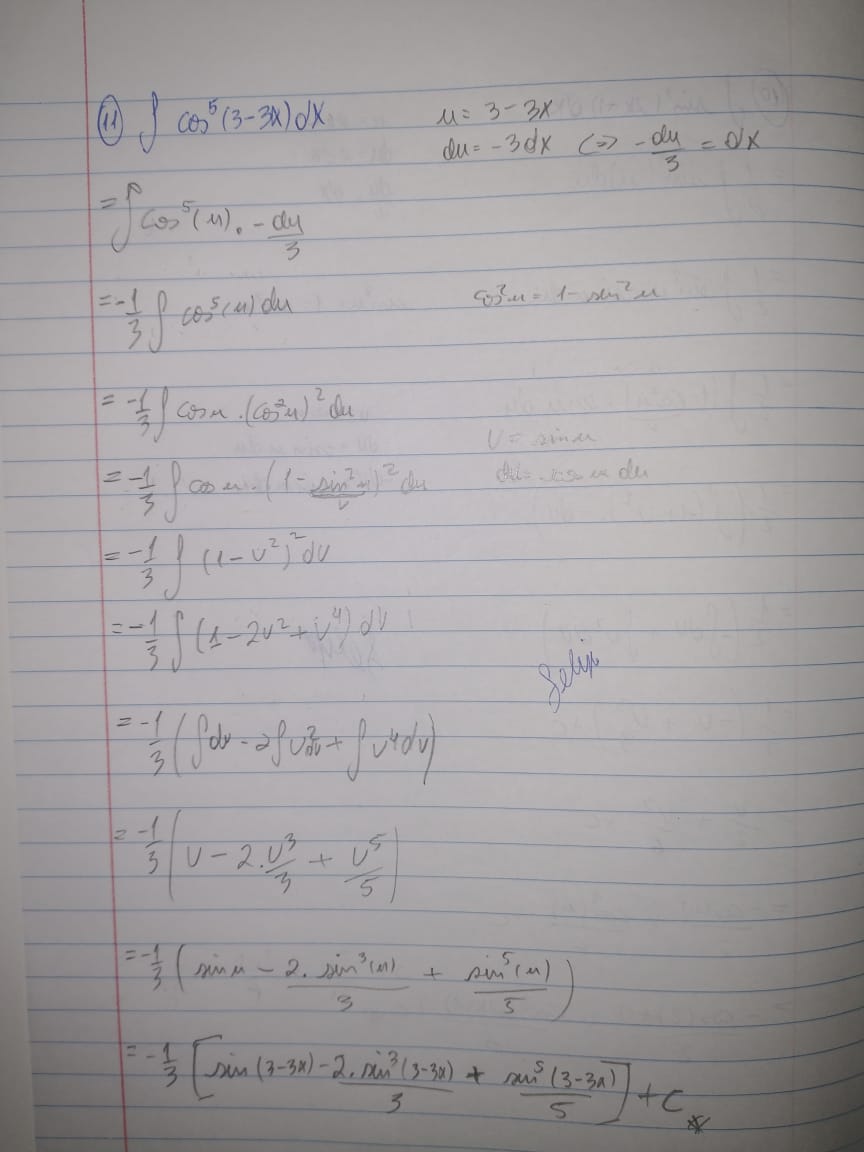 11 ∫ cos⁵(3-3x)dx u = 3-3x
du = -3dx <=> -du/3 = dx
= ∫ cos⁵(u) . -du/3
= -1/3 ∫ cos⁵(u) du cos²u = 1 - sin²u
= -1/3 ∫ cos u . (cos²u)² du
v = sin u
= -1/3 ∫ cos u . (1 - sin²u)² du dv = cos u du
v
= -1/3 ∫ (1-v²)² dv
= -1/3 ∫ (1-2v²+v⁴) dv
Selip
= -1/3 (∫dv - 2∫v²dv + ∫v⁴dv)
= -1/3 (v - 2.v³/3 + v⁵/5)
= -1/3 (sin u - 2.sin³(u)/3 + sin⁵(u)/5)
= -1/3 [sin(3-3x) - 2.sin³(3-3x)/3 + sin⁵(3-3x)/5] + C